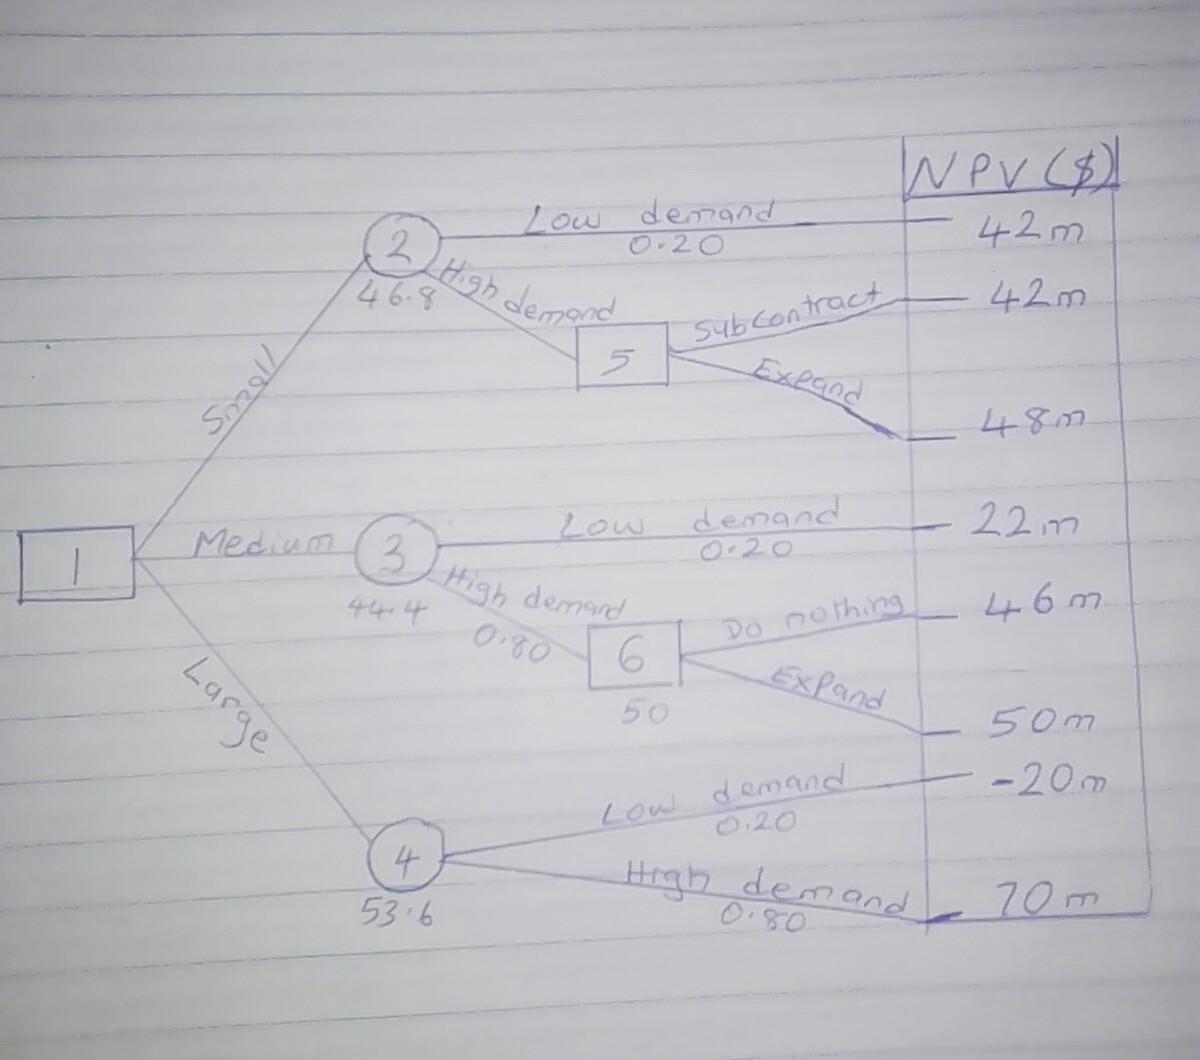 NPV ($)
Low demand
42m
2
0.20
46.8
High demand
Subcontract
42m
5
Expand
48m
Small
Low demand
22m
1
Medium
3
0.20
44.4
High demand
Do nothing
46m
0.80
6
Expand
50
50m
Large
Low demand
-20m
0.20
4
High demand
70m
53.6
0.80